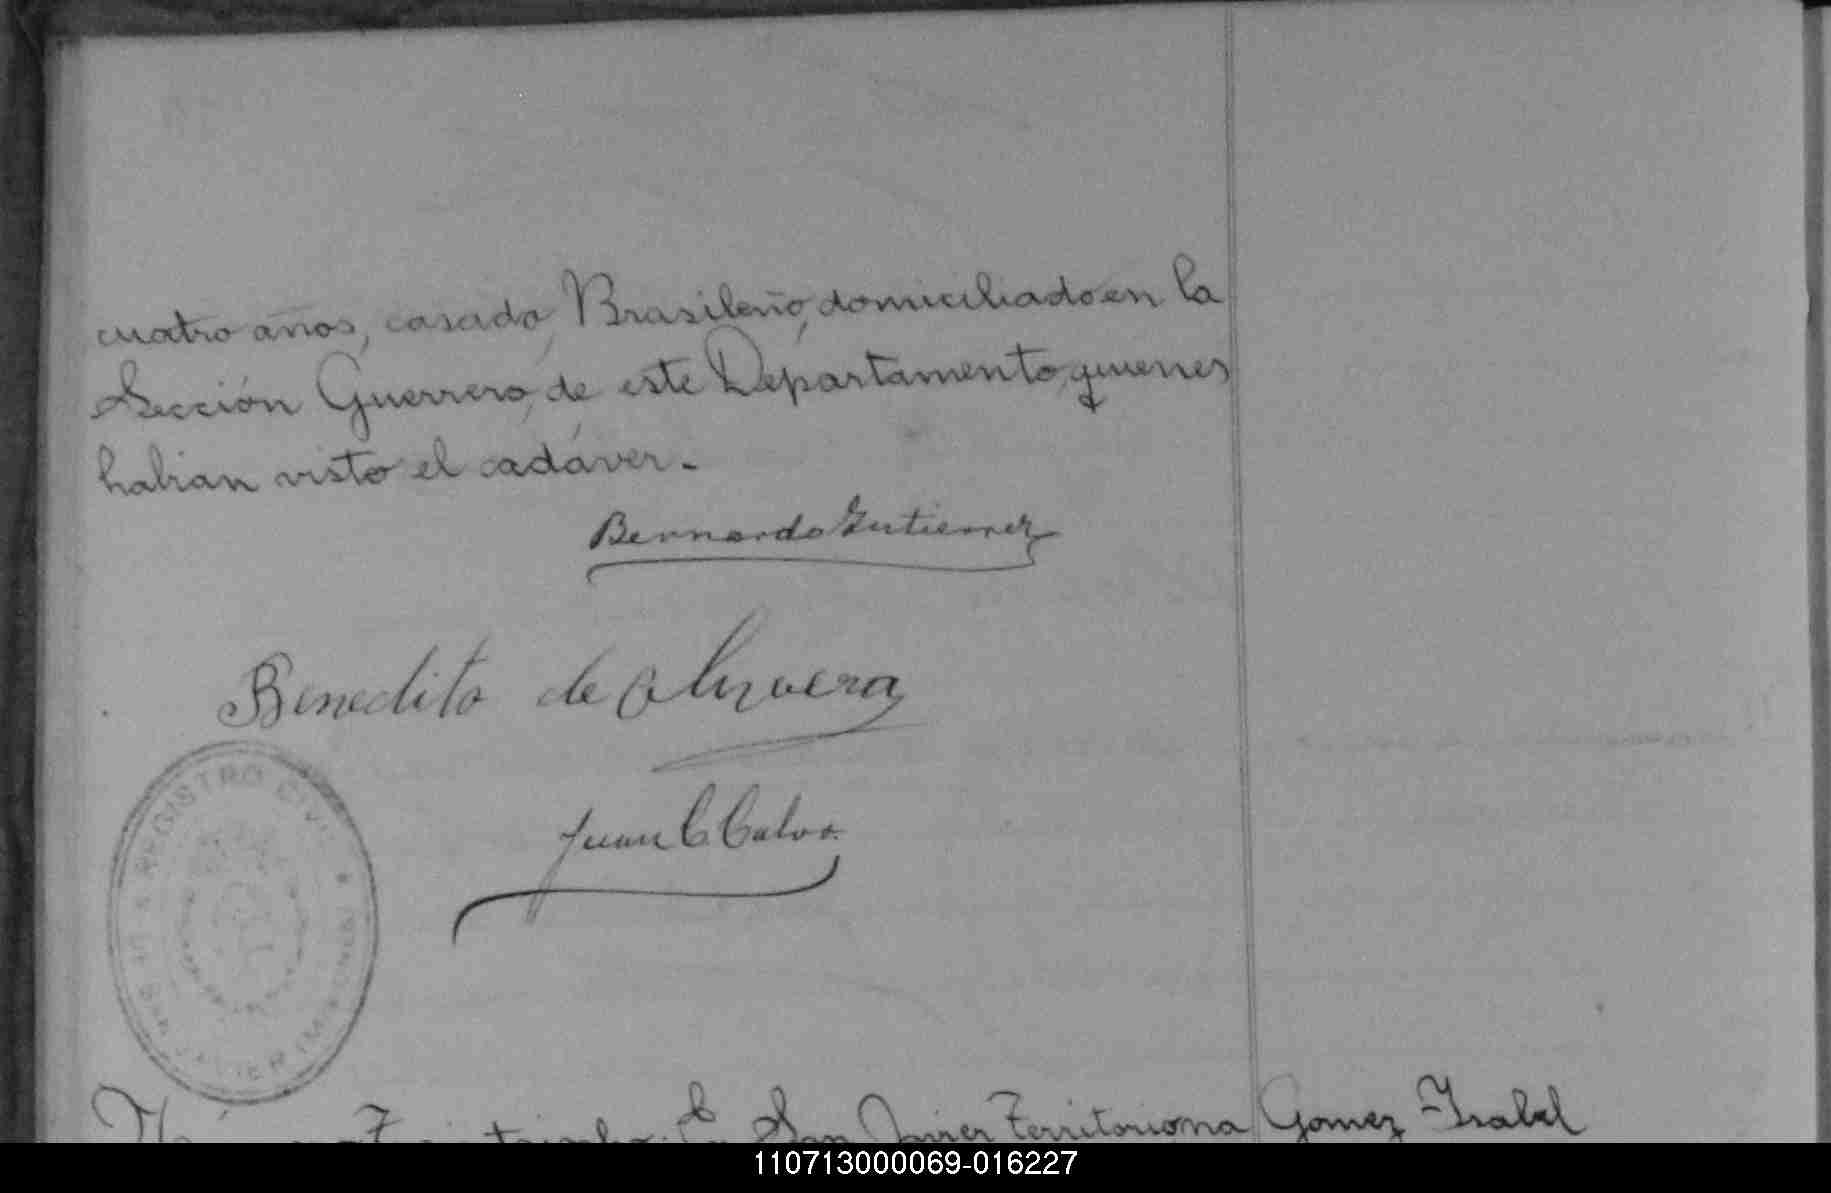 cuatro años, casado, Brasileño, domiciliado en la
Sección Guerrero, de este Departamento, quienes
habian visto el cadáver.-
Bernardo Gutierrez
Benedito de Oliveera
Juan C Calvo.
REGISTRO CIVIL
SAN JAVIER (MISIONES)
En San Javier Territorio na
Gomez Isabel
110713000069-016227